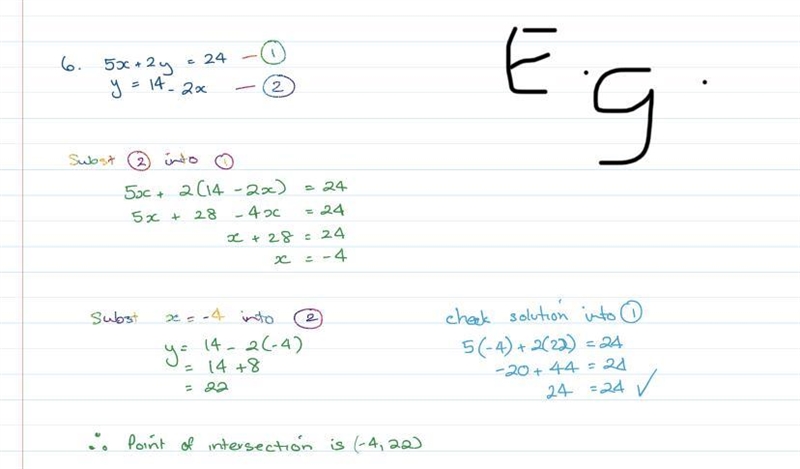 6. 5x + 2y = 24 — ①
y = 14 - 2x — ②
E.g.
Subst ② into ①
5x + 2(14 - 2x) = 24
5x + 28 - 4x = 24
x + 28 = 24
x = -4
Subst x = -4 into ②
y = 14 - 2(-4)
= 14 + 8
= 22
check solution into ①
5(-4) + 2(22) = 24
-20 + 44 = 24
24 = 24 ✓
∴ Point of intersection is (-4, 22)